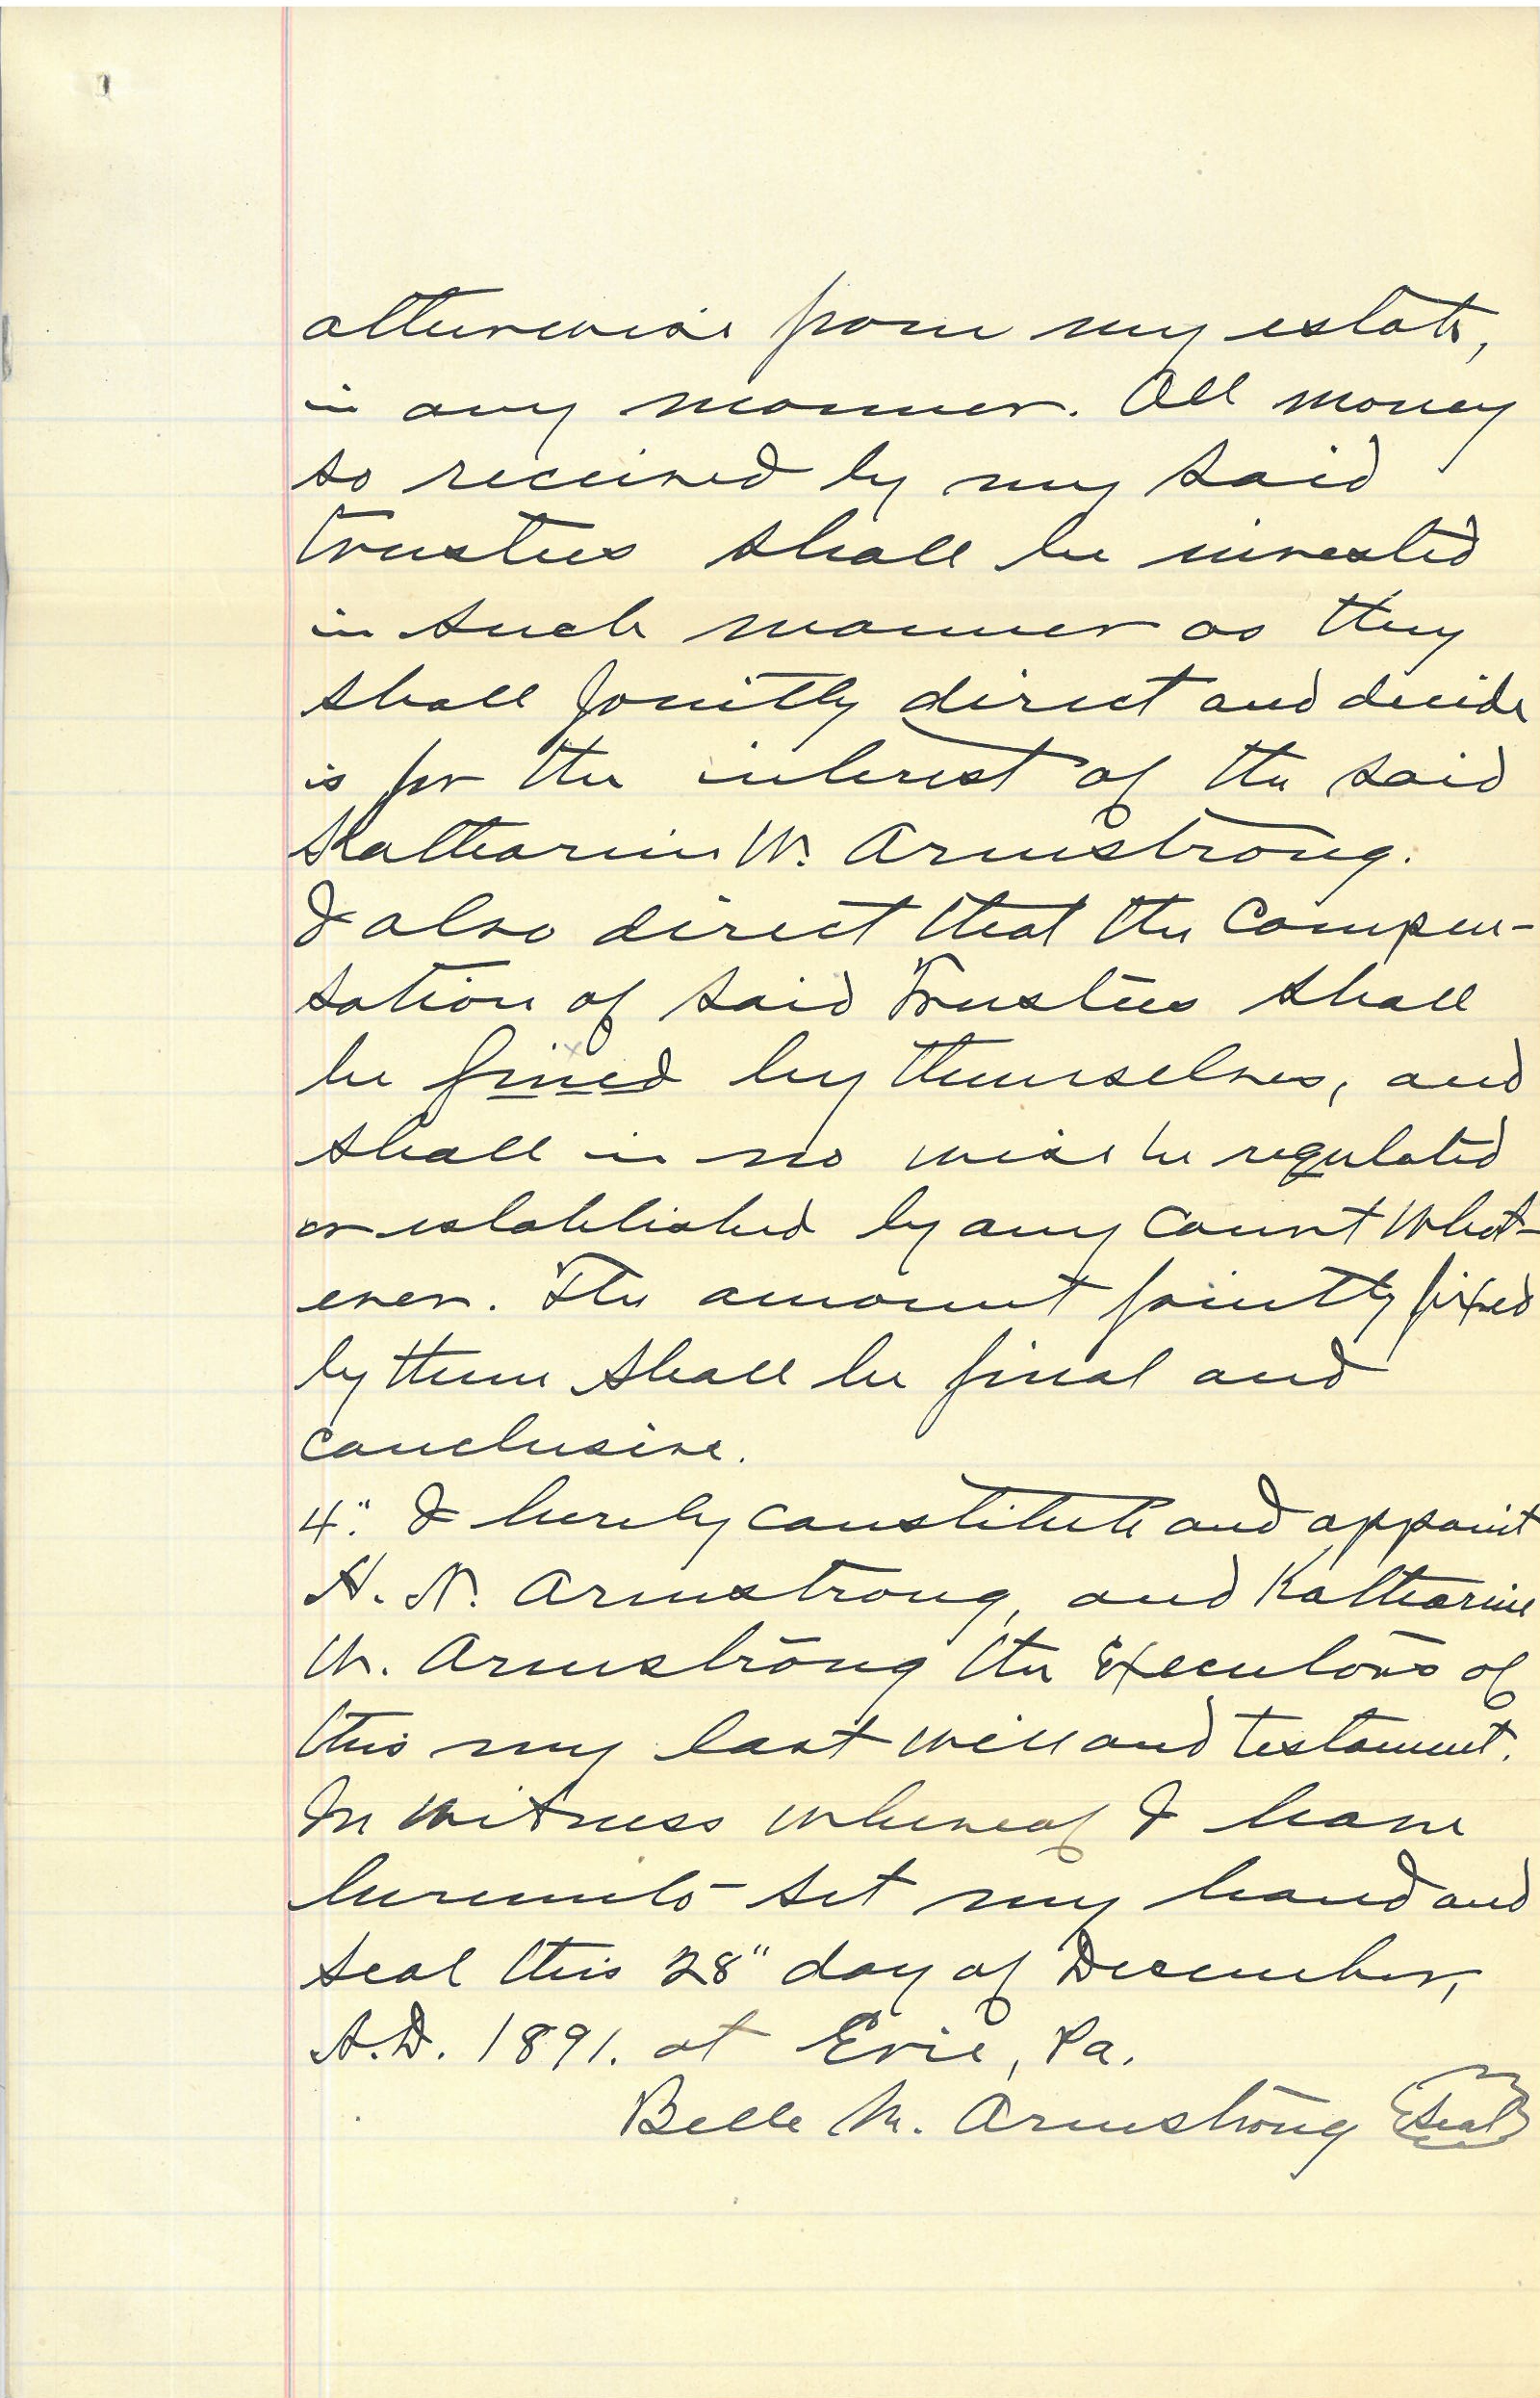 otherwise from my estate,
in any manner. All money
so received by my said
trustees shall be invested
in such manner as they
shall jointly direct and decide
is for the interest of the said
Katharine W. Armstrong.
I also direct that the compen-
sation of said Trustees shall
be fixed by themselves, and
shall in no wise be regulated
or established by any Court what-
ever. The amount jointly fixed
by them shall be final and
conclusive.
4". I hereby constitute and appoint
H. N. Armstrong, and Katharine
W. Armstrong the Executors of
this my last will and testament.
In witness whereof I have
hereunto set my hand and
seal this 28" day of December,
A.D. 1891. at Erie, Pa.
Belle M. Armstrong Seal